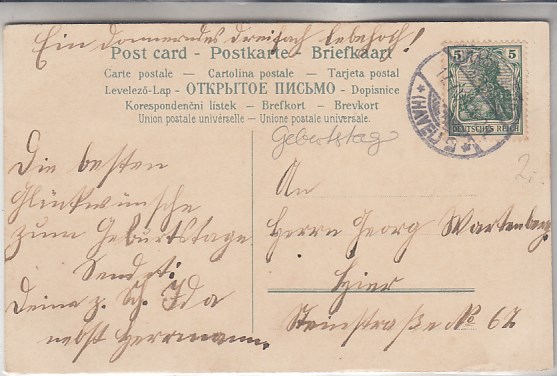 Ein donnerndes dreifach Lebehoch!
Post card - Postkarte - Briefkaart
Carte postale — Cartolina postale — Tarjeta postal
Levelező-Lap - ОТКРЫТОЕ ПИСЬМО - Dopisnice
Korespondenční lístek — Brefkort - Brevkort
Union postale universelle — Unione postale universale.
Geburtstag
5 5
DEUTSCHES REICH
(HAVEL)
2.-
Die besten
Glückwünsche
zum Geburtstage
Sendet:
Deine z. Sch. Ida
nebst Herrmann.
An
Herrn Georg Wartenberg
Hier
Steinstraße No 62